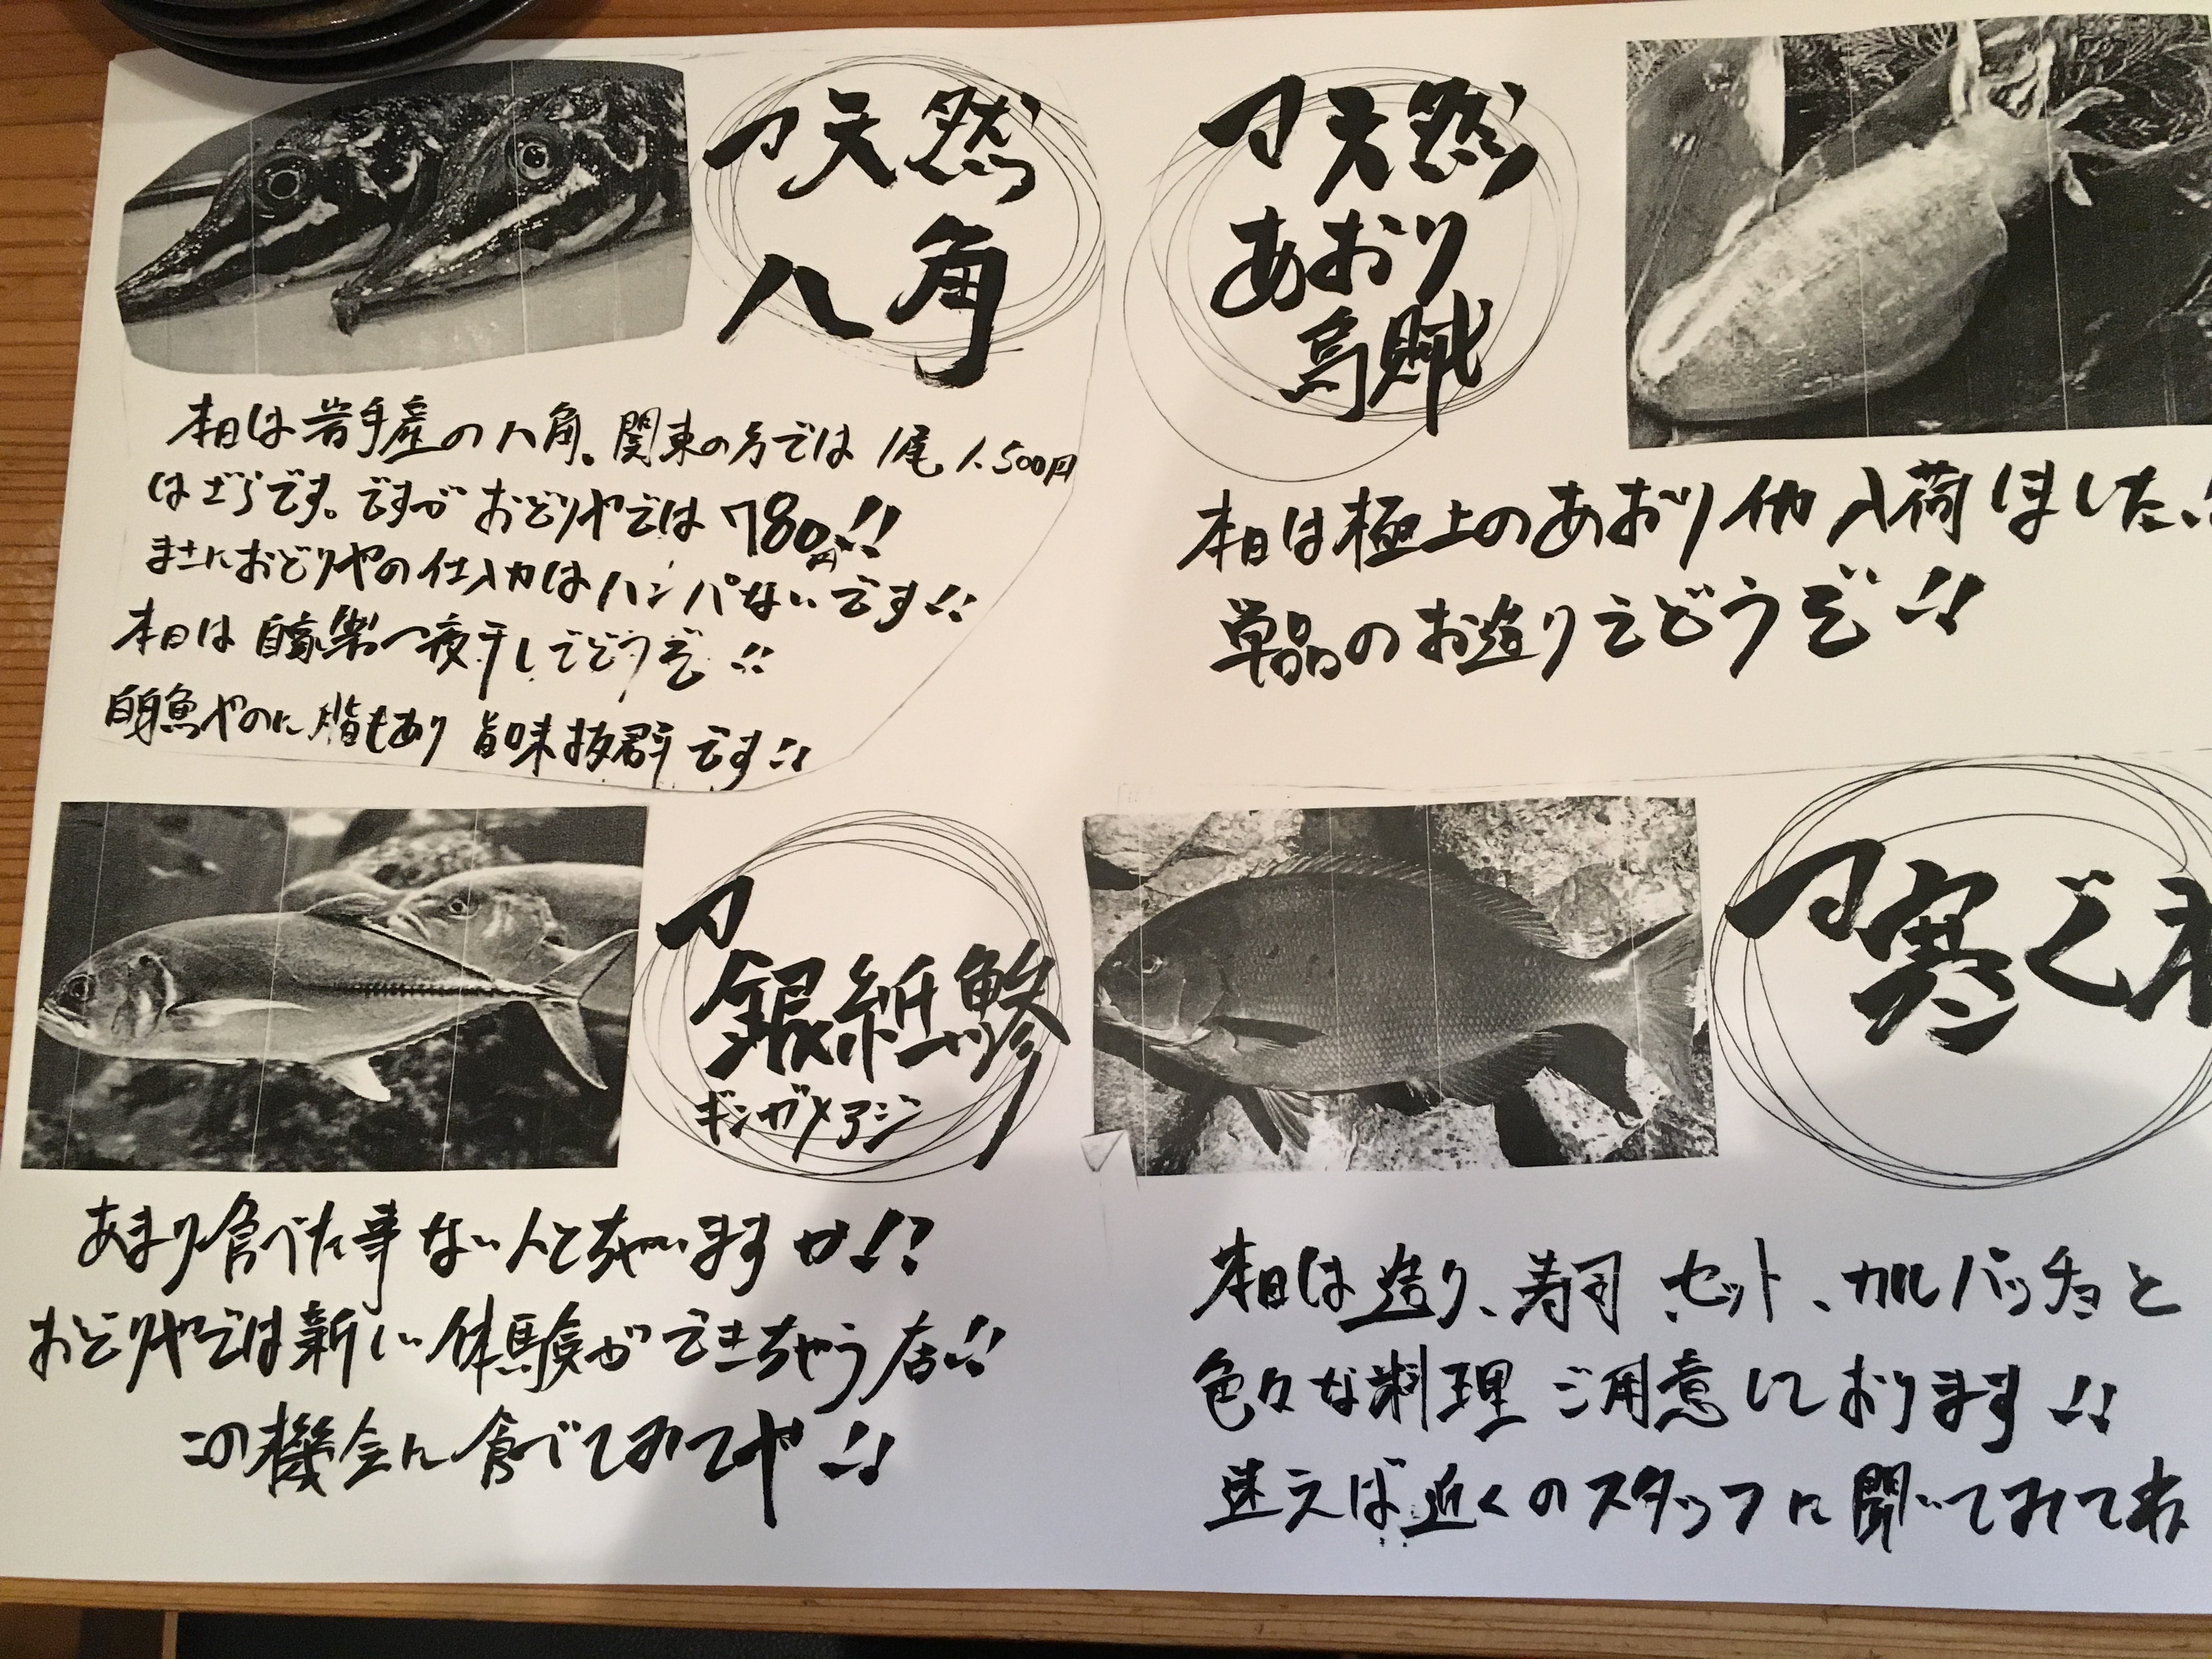 天然
八角
本日は岩手産の八角。関東の方では1尾1,500円
はざらです。ですがおどりやでは780円!!
まさにおどりやの仕入力はハンパないです!!
本日は自家製一夜干しでどうぞ!!
白身魚やのに脂もあり旨味抜群です!!
天然
あおり
烏賊
本日は極上のあおりイカ入荷しました!!
単品のお造りでどうぞ!!
銀紙鯵
ギンガメアジ
あまり食べた事ない人とちゃいますか!?
おどりやでは新しい体験ができちゃう店!!
この機会に食べてみてや!!
寒ぐれ
本日は造り、寿司、セット、カルパッチョと
色々な料理ご用意しております!!
迷えば近くのスタッフに聞いてみてね